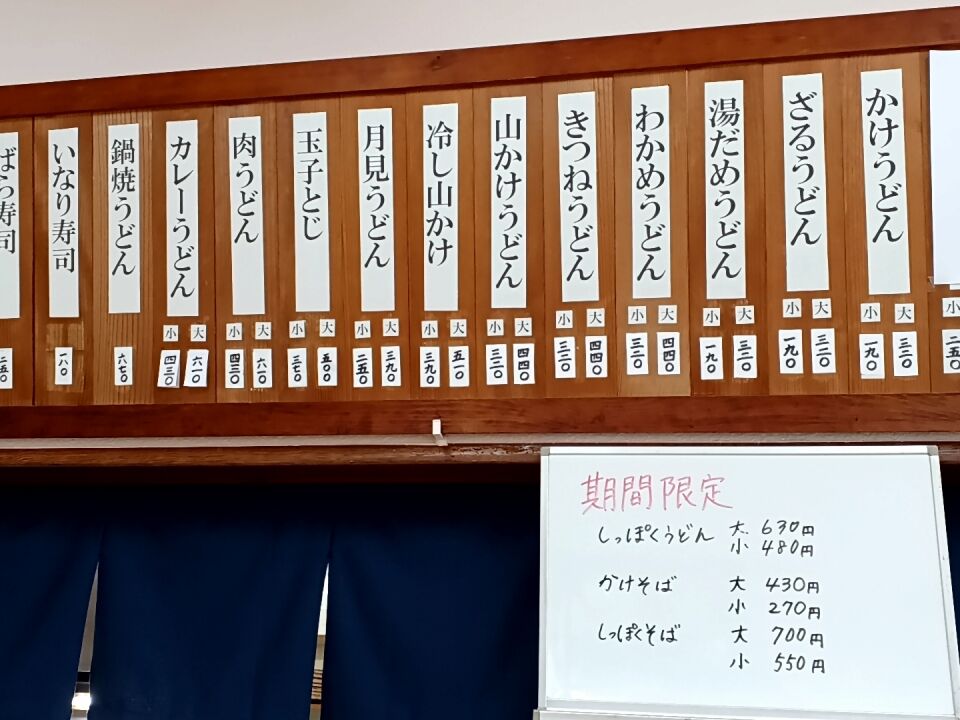 小
二五〇
かけうどん
小 大
一九〇 三二〇
ざるうどん
小 大
一九〇 三二〇
湯だめうどん
小 大
一九〇 三二〇
わかめうどん
小 大
三二〇 四四〇
きつねうどん
小 大
三二〇 四四〇
山かけうどん
小 大
三二〇 四四〇
冷し山かけ
小 大
三九〇 五一〇
月見うどん
小 大
二五〇 三九〇
玉子とじ
小 大
三七〇 五〇〇
肉うどん
小 大
四三〇 六一〇
カレーうどん
小 大
四三〇 六一〇
鍋焼うどん
六七〇
いなり寿司
一八〇
ばら寿司
二五〇
期間限定
しっぽくうどん 大 630円
小 480円
かけそば 大 430円
小 270円
しっぽくそば 大 700円
小 550円